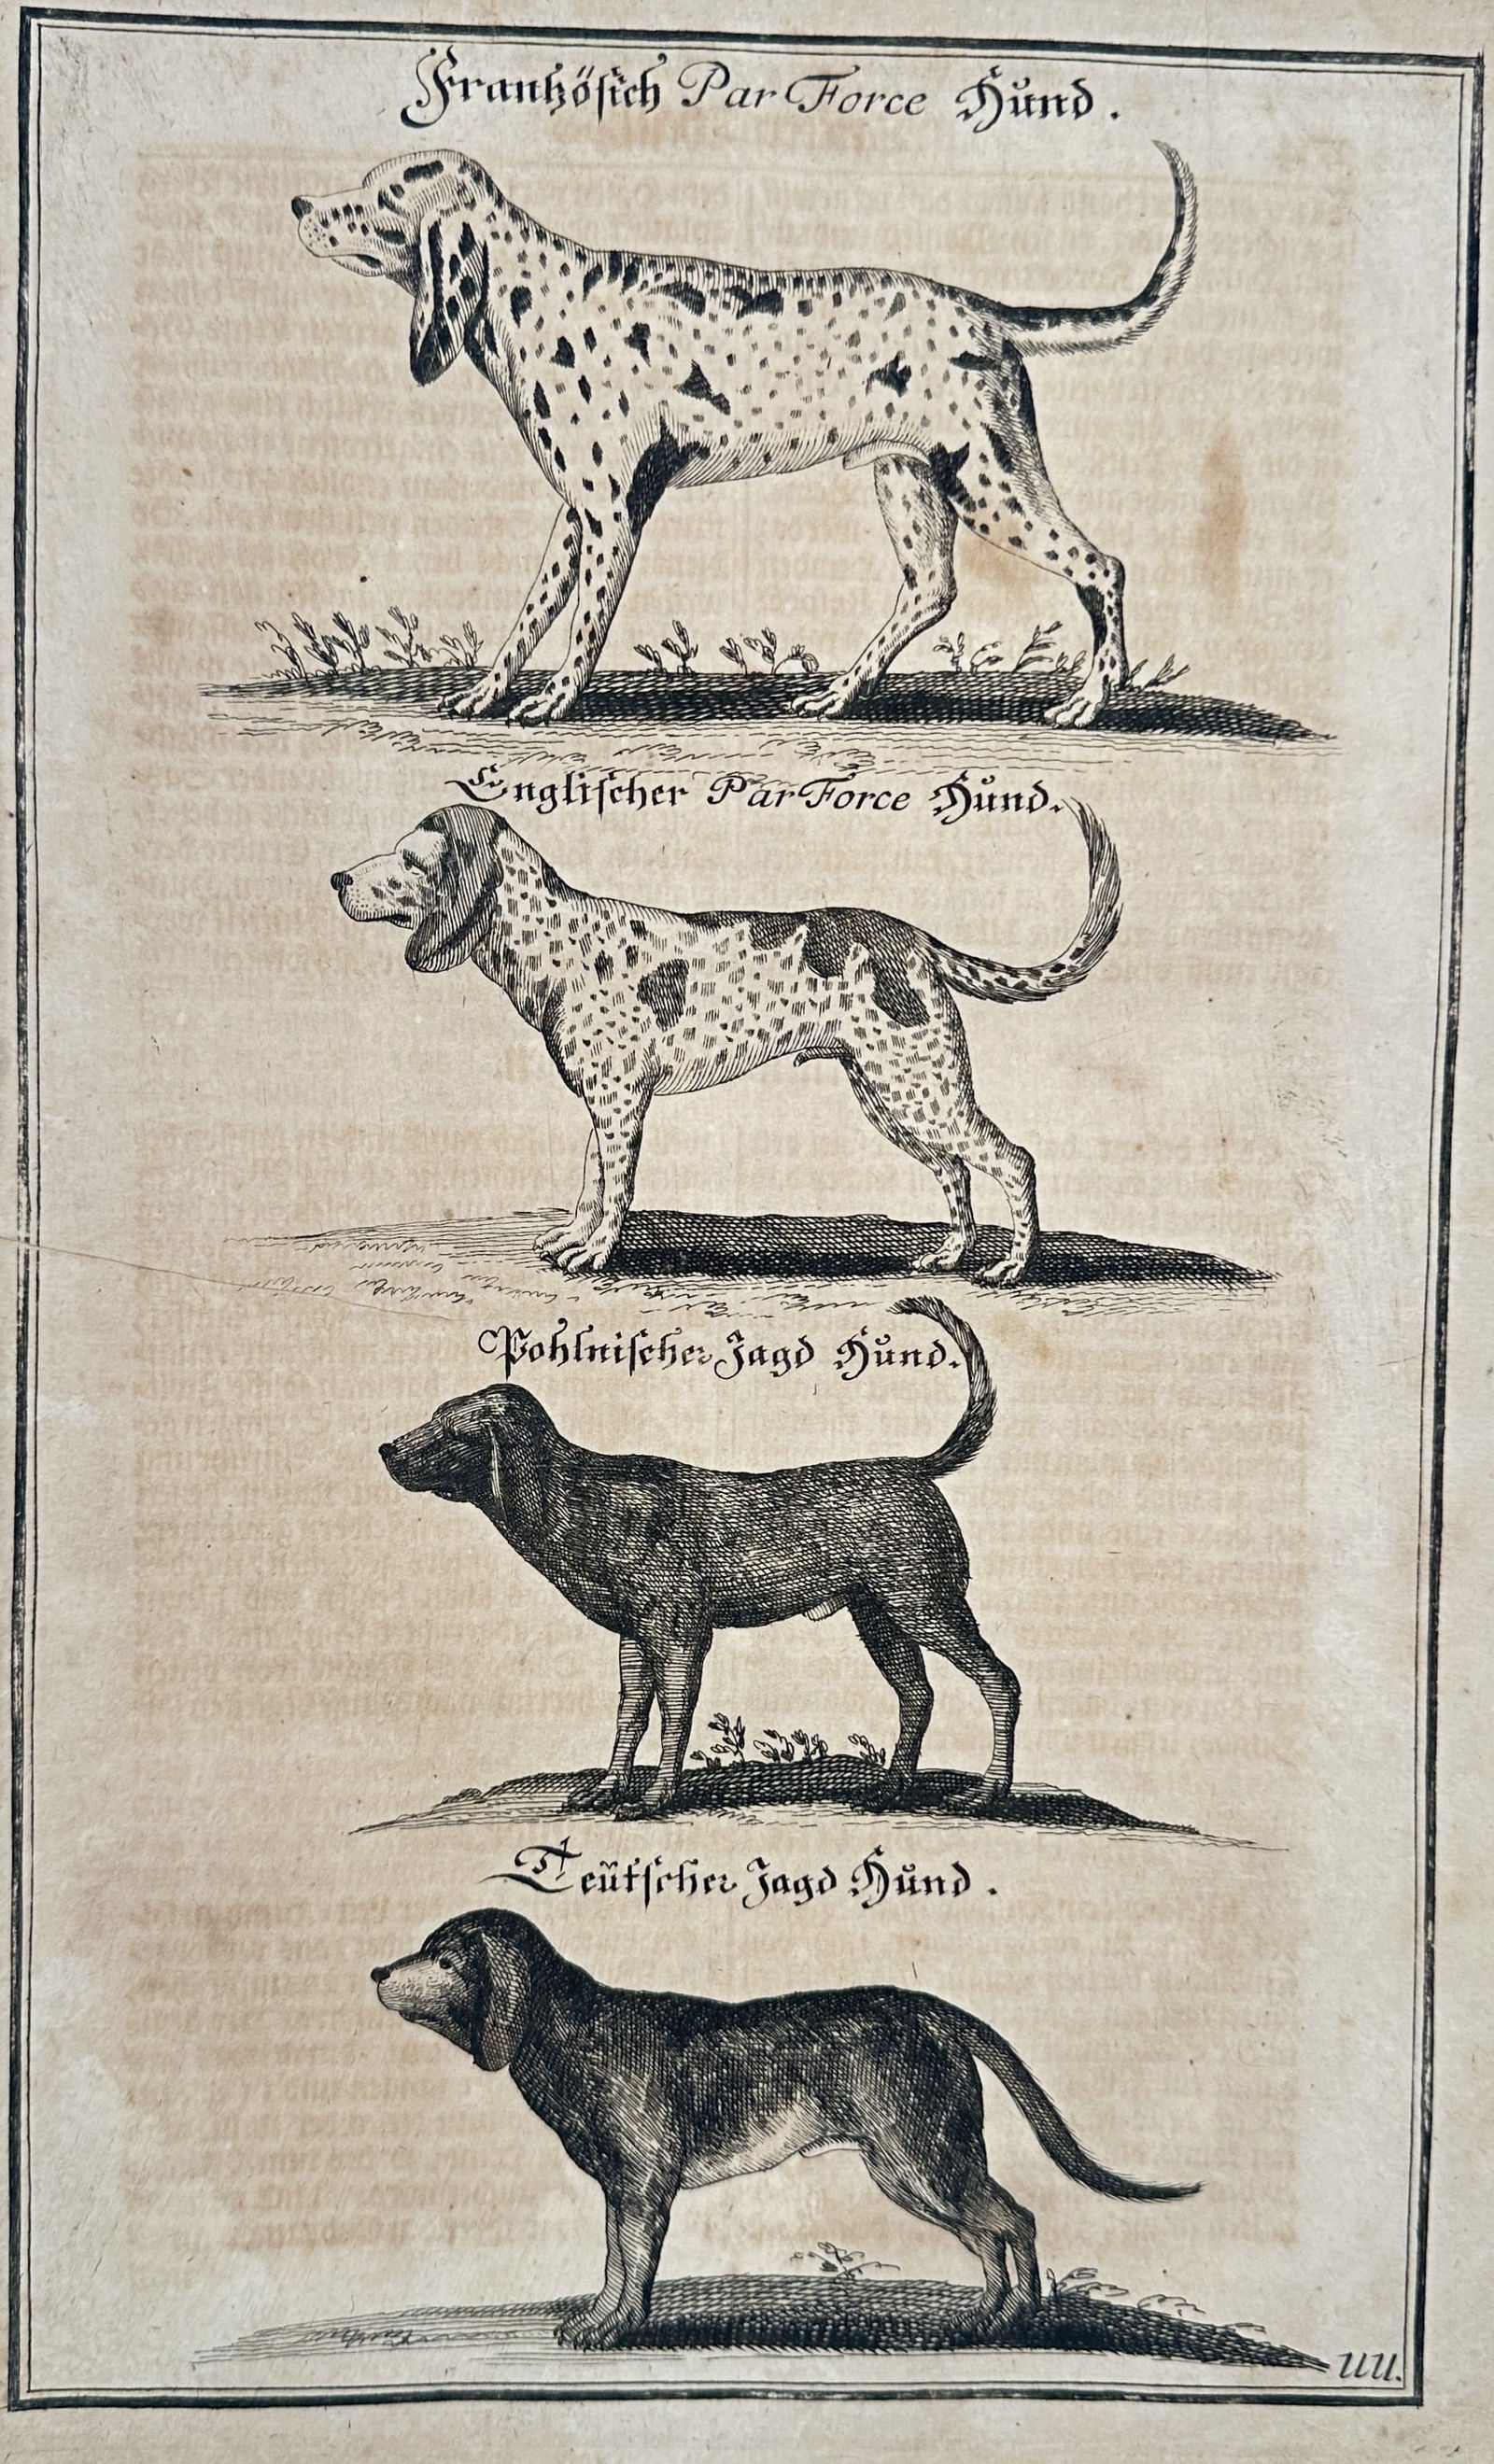 Frantzösich Par Force Hůnd.
Englischer Par Force Hůnd.
Pohlnischer Jagd Hůnd.
Teütscher Jagd Hůnd.
uu.